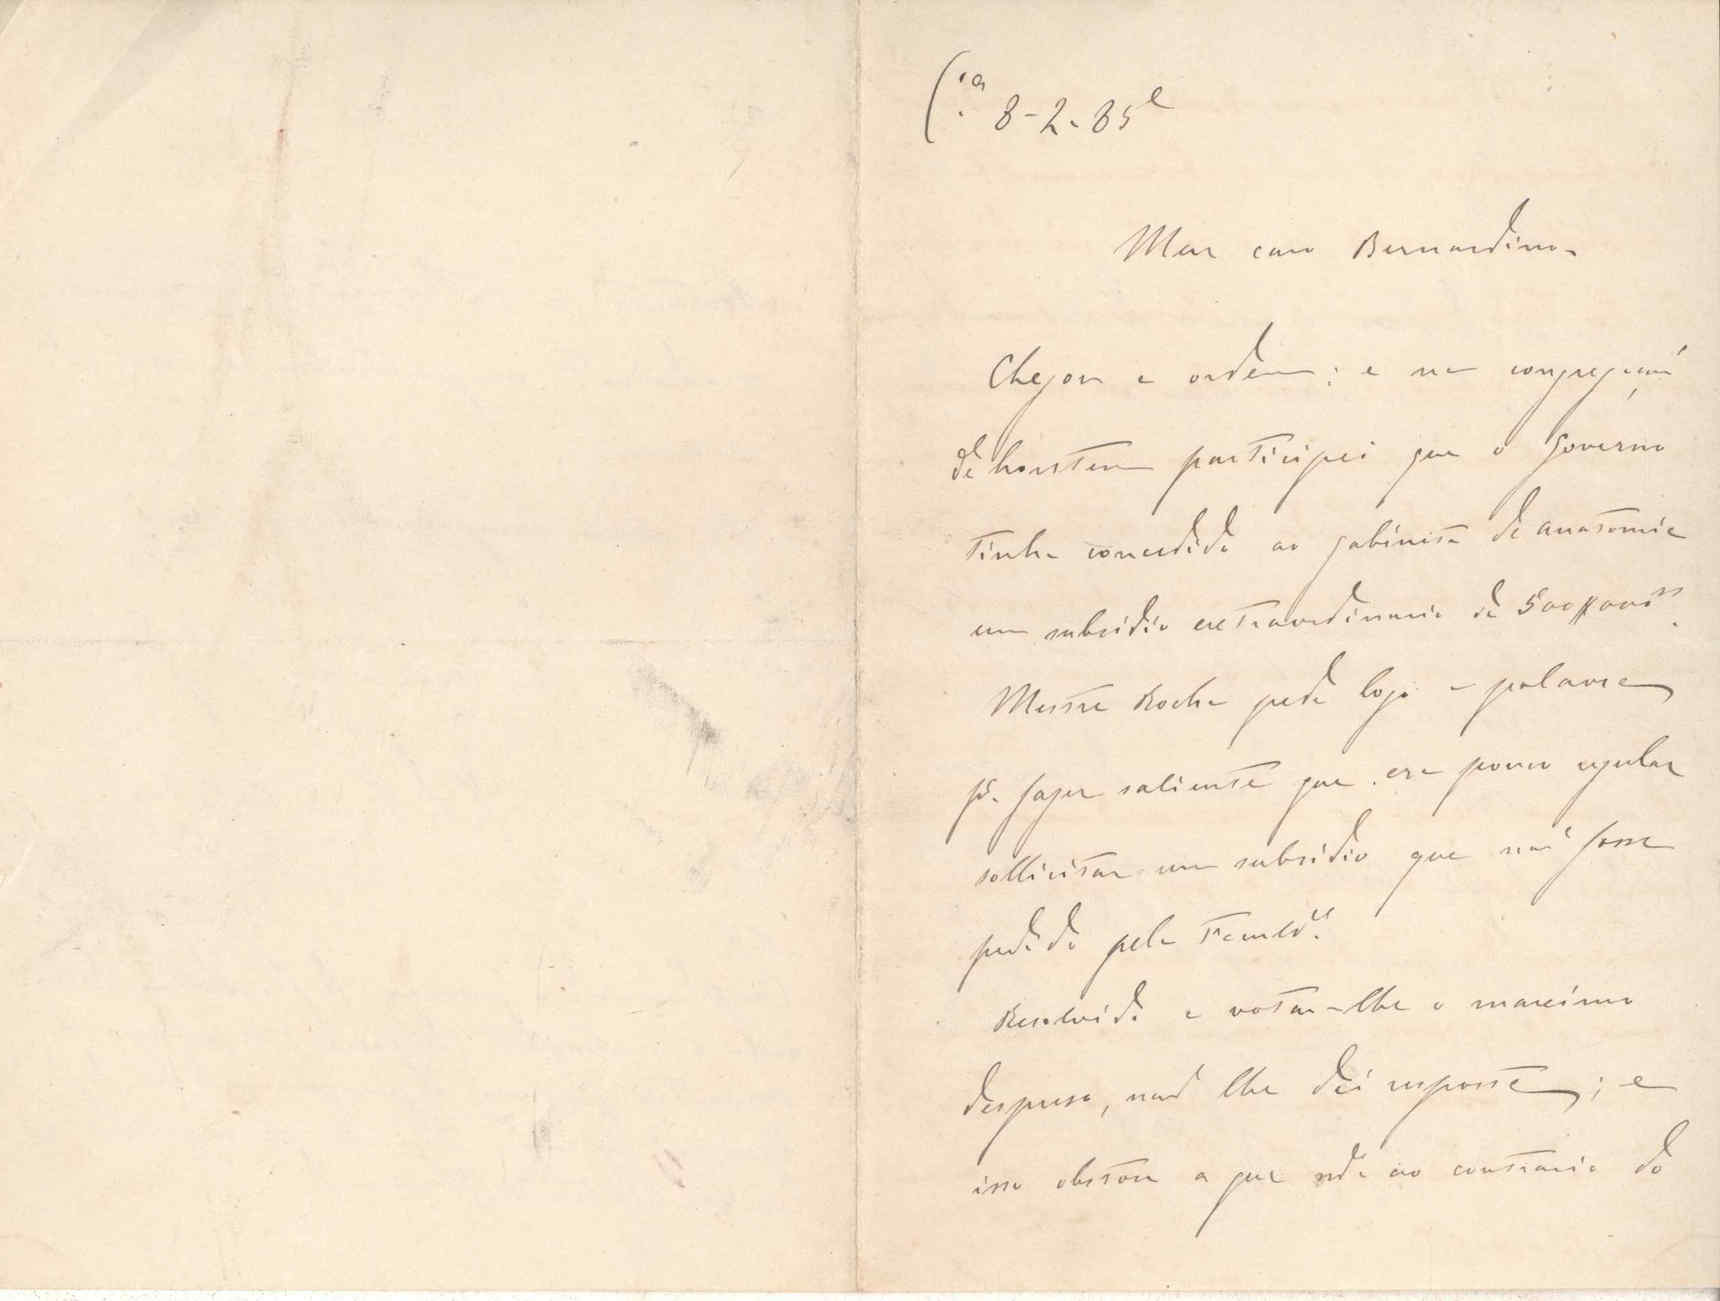 C.ª 8-2-85
Meu caro Bernardino.
Chegou a ordem; e na congregação
de hontem participei que o Governo
tinha concedido ao gabinete de anatomia
um subsidio extraordinario de 500$000
Mestre Rocha pede logo a palavra
pª. fazer saliente que era pouco regular
sollicitar um subsidio que não fosse
pedido pela Facul.de
Resolvido a votar-lhe o maximo
despreso, não lhe dei resposta; e
isso obstou a que ao contrario do